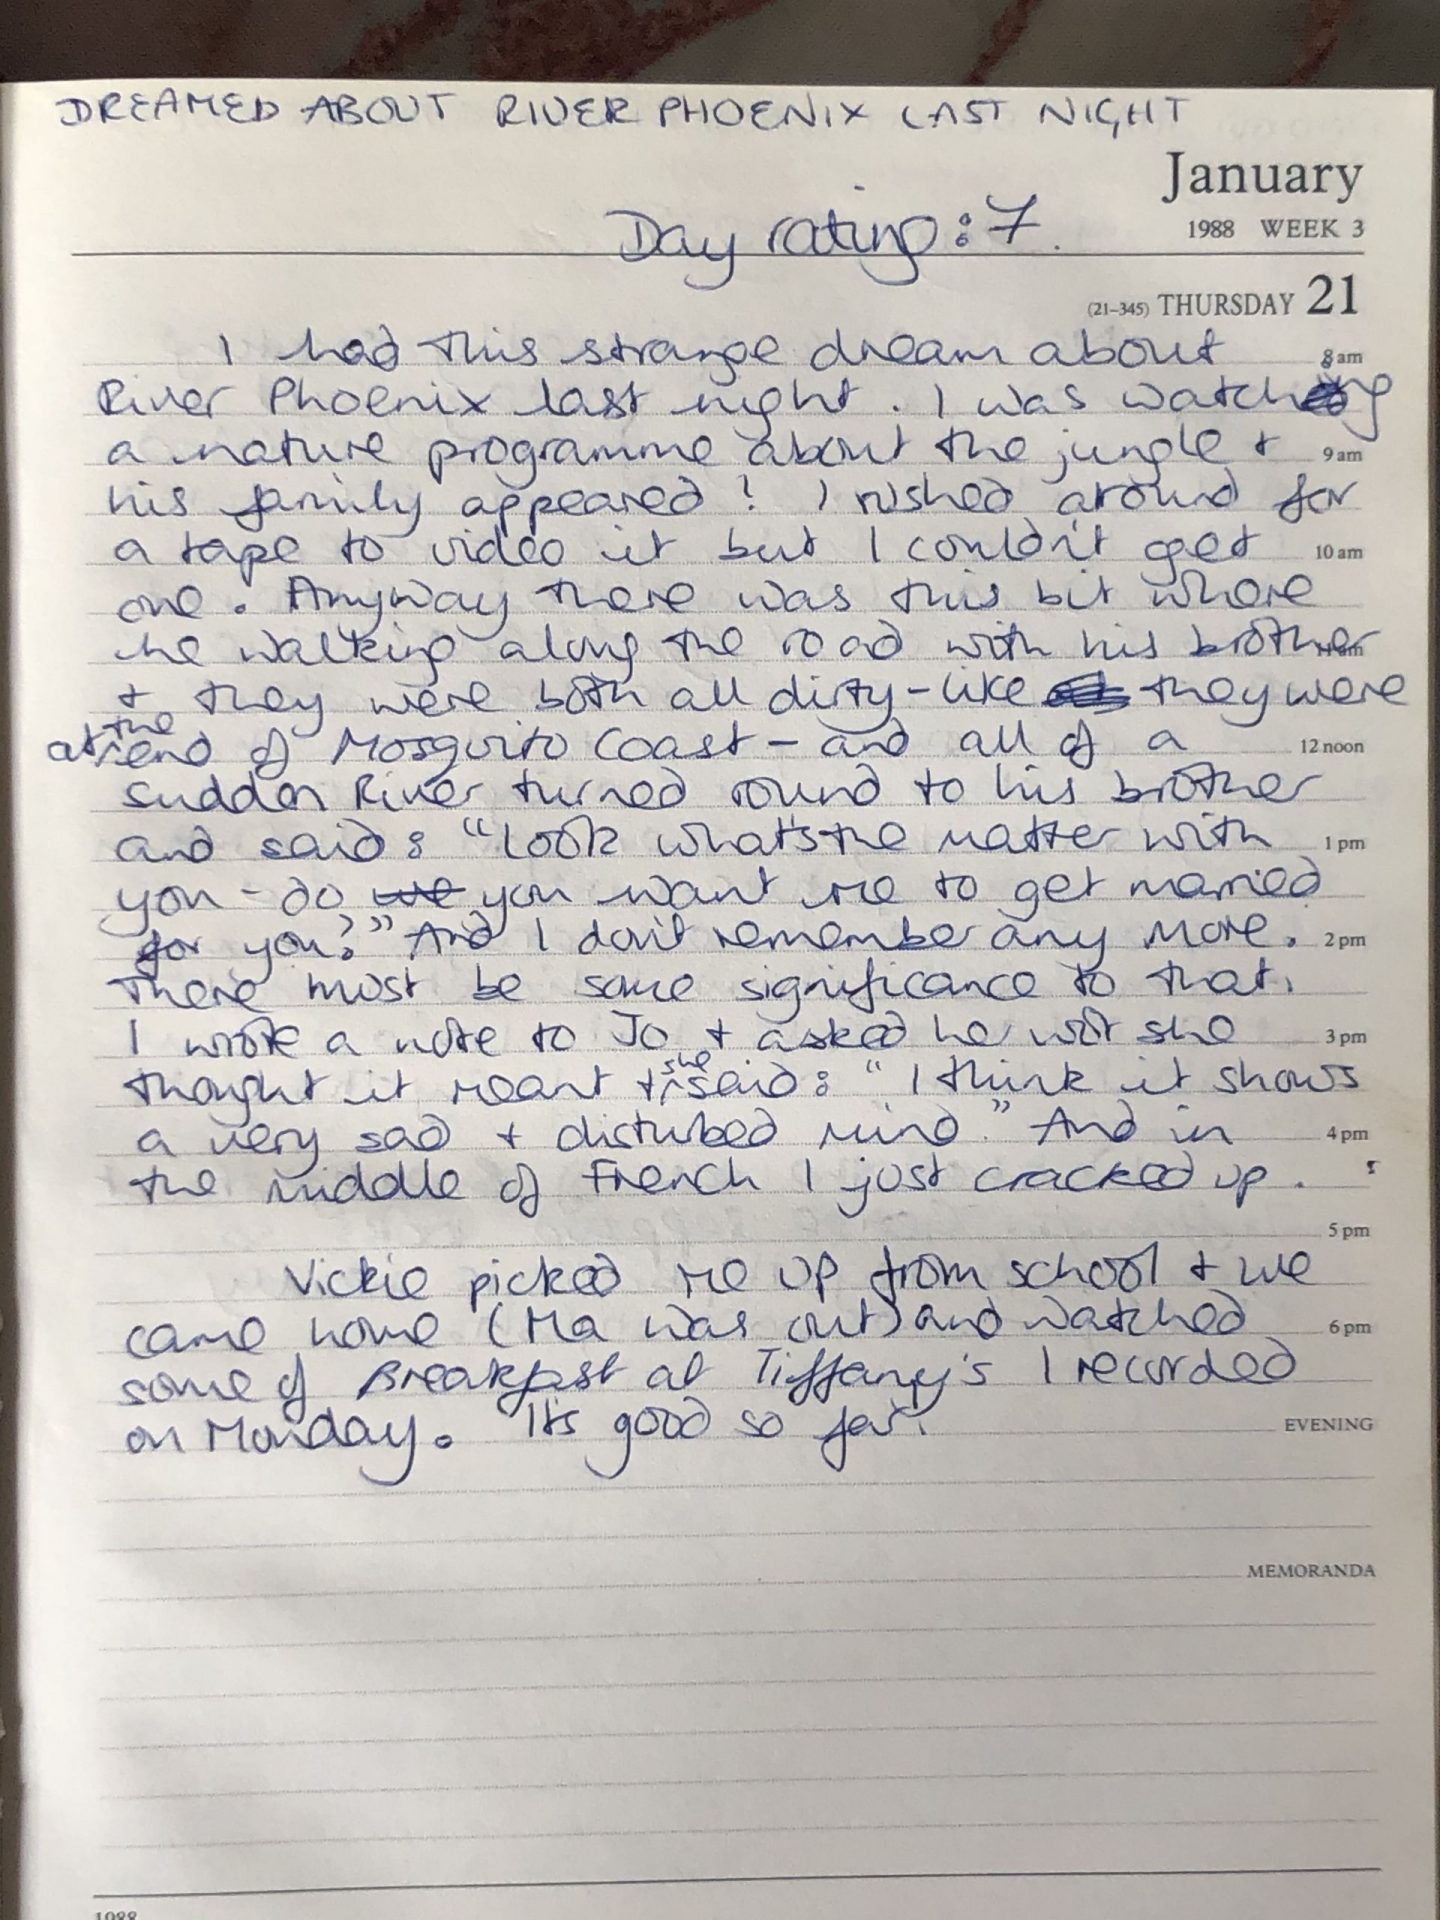 DREAMED ABOUT RIVER PHOENIX LAST NIGHT
January
Day rating: 7.
1988 WEEK 3
(21-345) THURSDAY 21
I had this strange dream about
8 am
River Phoenix last night. I was watching
a nature programme about the jungle +
9 am
his family appeared! I rushed around for
a tape to video it but I couldn't get
10 am
one. Anyway there was this bit where
he walking along the road with his brother
+ they were both all dirty - like they were
at the end of Mosquito Coast - and all of a
12 noon
sudden River turned round to his brother
and said: "Look what's the matter with
1 pm
you - do we you want me to get married
for you?" And I don't remember any more.
2 pm
There must be some significance to that.
I wrote a note to Jo + asked her wot she
3 pm
thought it meant + she said: "I think it shows
a very sad + disturbed mind." And in
4 pm
the middle of French I just cracked up.
5 pm
Vickie picked me up from school + we
came home (Ma was out) and watched
6 pm
some of Breakfast at Tiffany's I recorded
on Monday. It's good so far.
EVENING
MEMORANDA
1988